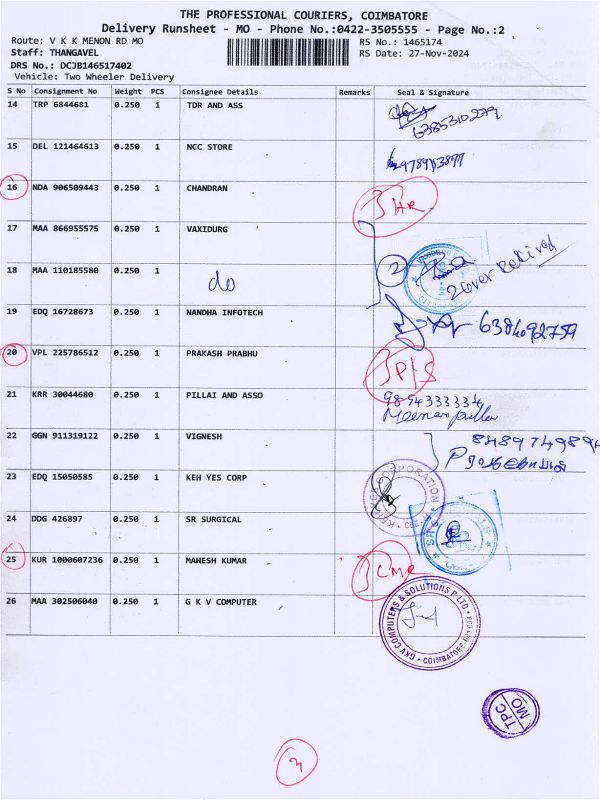 THE PROFESSIONAL COURIERS, COIMBATORE
Delivery Runsheet - MO - Phone No.:0422-3505555 - Page No.:2
Route: V K K MENON RD MO
RS No.: 1465174
Staff: THANGAVEL
RS Date: 27-Nov-2024
DRS No.: DCJB146517402
Vehicle: Two Wheeler Delivery
S No Consignment No Weight PCS Consignee Details Remarks Seal & Signature
14 TRP 6844681 0.250 1 TDR AND ASS
6385310279
15 DEL 121464613 0.250 1 NCC STORE
16 NDA 906509443 0.250 1 CHANDRAN
17 MAA 866955575 0.250 1 VAXIDURG
18 MAA 110185580 0.250 1 do
2
19 EDQ 16728673 0.250 1 NANDHA INFOTECH
20 VPL 225786512 0.250 1 PRAKASH PRABHU
P/S
21 KRR 30044680 0.250 1 PILLAI AND ASSO
22 GGN 911319122 0.250 1 VIGNESH
23 EDQ 15050585 0.250 1 KEH YES CORP
24 DDG 426897 0.250 1 SR SURGICAL
25 KUR 1000607236 0.250 1 MAHESH KUMAR
26 MAA 302506040 0.250 1 G K V COMPUTER
GKV COMPUTERS & SOLUTIONS P LTD
TPC
MO
3